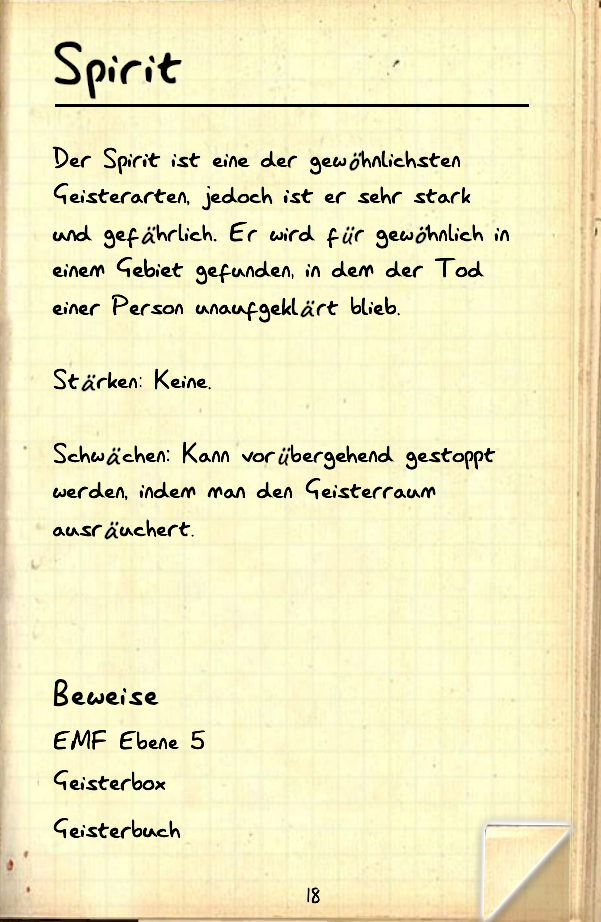 Spirit
Der Spirit ist eine der gewöhnlichsten
Geisterarten, jedoch ist er sehr stark
und gefährlich. Er wird für gewöhnlich in
einem Gebiet gefunden, in dem der Tod
einer Person unaufgeklärt blieb.
Stärken: Keine.
Schwächen: Kann vorübergehend gestoppt
werden, indem man den Geisterraum
ausräuchert.
Beweise
EMF Ebene 5
Geisterbox
Geisterbuch
18